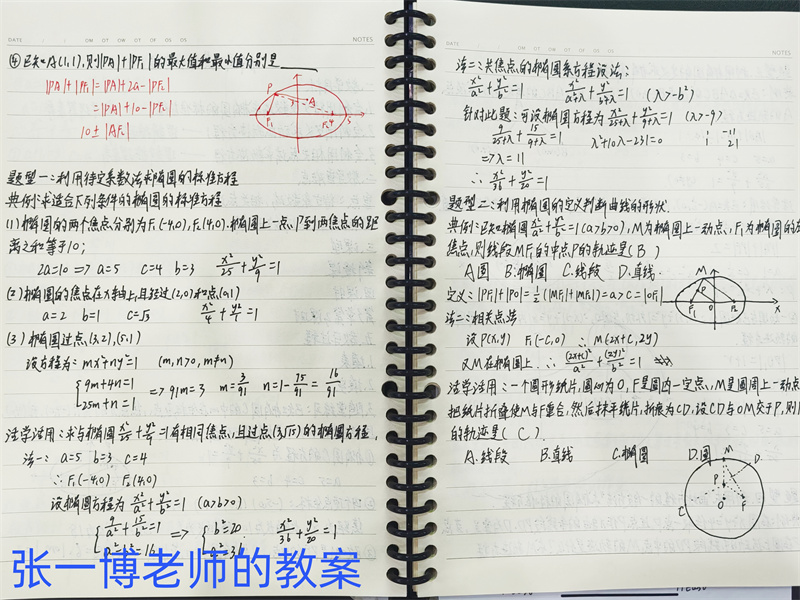 DATE
OM OT OW OT OF OS OS
NOTES
④已知A(1,1),则|PA|+|PF₁|的最大值和最小值分别是
|PA|+|PF₁|=|PA|+2a-|PF₂|
=|PA|+10-|PF₂|
10±|AF₂|
P
A
F₁
F₂ 4
题型一:利用待定系数法求椭圆的标准方程
典例:求适合下列条件的椭圆的标准方程
(1)椭圆的两个焦点分别为F₁(-4,0),F₂(4,0).椭圆上一点P到两焦点的距
离之和等于10;
2a=10 => a=5 c=4 b=3 x²/25+y²/9=1
(2)椭圆的焦点在x轴上,且经过(2,0)和点(0,1)
a=2 b=1 c=√3 x²/4+y²/1=1
(3)椭圆过点(3,2),(5,1)
设方程为:mx²+ny²=1 (m,n>0,m≠n)
{9m+4n=1
25m+n=1
=>91m=3 m=3/91 n=1-75/91=16/91
活学活用:求与椭圆x²/25+y²/9=1有相同焦点,且过点(3,√15)的椭圆方程,
法一: a=5 b=3 c=4
∴F₁(-4,0) F₂(4,0)
设椭圆方程为x²/a²+y²/b²=1 (a>b>0)
{9/a²+15/b²=1
a²-b²=16
=> {b²=20
a²=36
x²/36+y²/20=1
张一博老师的教案
DATE
OM OT OW OT OF OS OS
NOTES
法二:共焦点的椭圆系方程设法:
x²/a²+y²/b²=1 x²/a²+λ+y²/b²+λ=1 (λ>-b²)
针对此题:可设椭圆方程为x²/25+λ+y²/9+λ=1 (λ>-9)
9/25+λ+15/9+λ=1 λ²+10λ-231=0 1 -11
1 21
=>λ=11
∴x²/36+y²/20=1
题型二:利用椭圆的定义判断曲线的形状.
典例:已知椭圆x²/a²+y²/b²=1(a>b>0),M为椭圆上一动点,F₁为椭圆的左
焦点,则线段MF₁的中点P的轨迹是(B)
A.圆 B.椭圆 C.线段 D.直线.
定义:|PF₁|+|PO|=½(|MF₁|+|MF₂|)=a>c=|OF₁|
M
P
F₁
O
F₂
x
法二:相关点法
设P(x,y) F₁(-c,0) ∴M(2x+c,2y)
又M在椭圆上.∴(2x+c)²/a²+(2y)²/b²=1
活学活用:一个圆形纸片,圆心为O,F是圆内一定点,M是圆周上一动点
把纸片折叠使M与F重合,然后抹平纸片,折痕为CD,设CD与OM交于P,则P
的轨迹是(C).
A.线段 B.直线 C.椭圆 D.圆
M
D
P
C
O
F